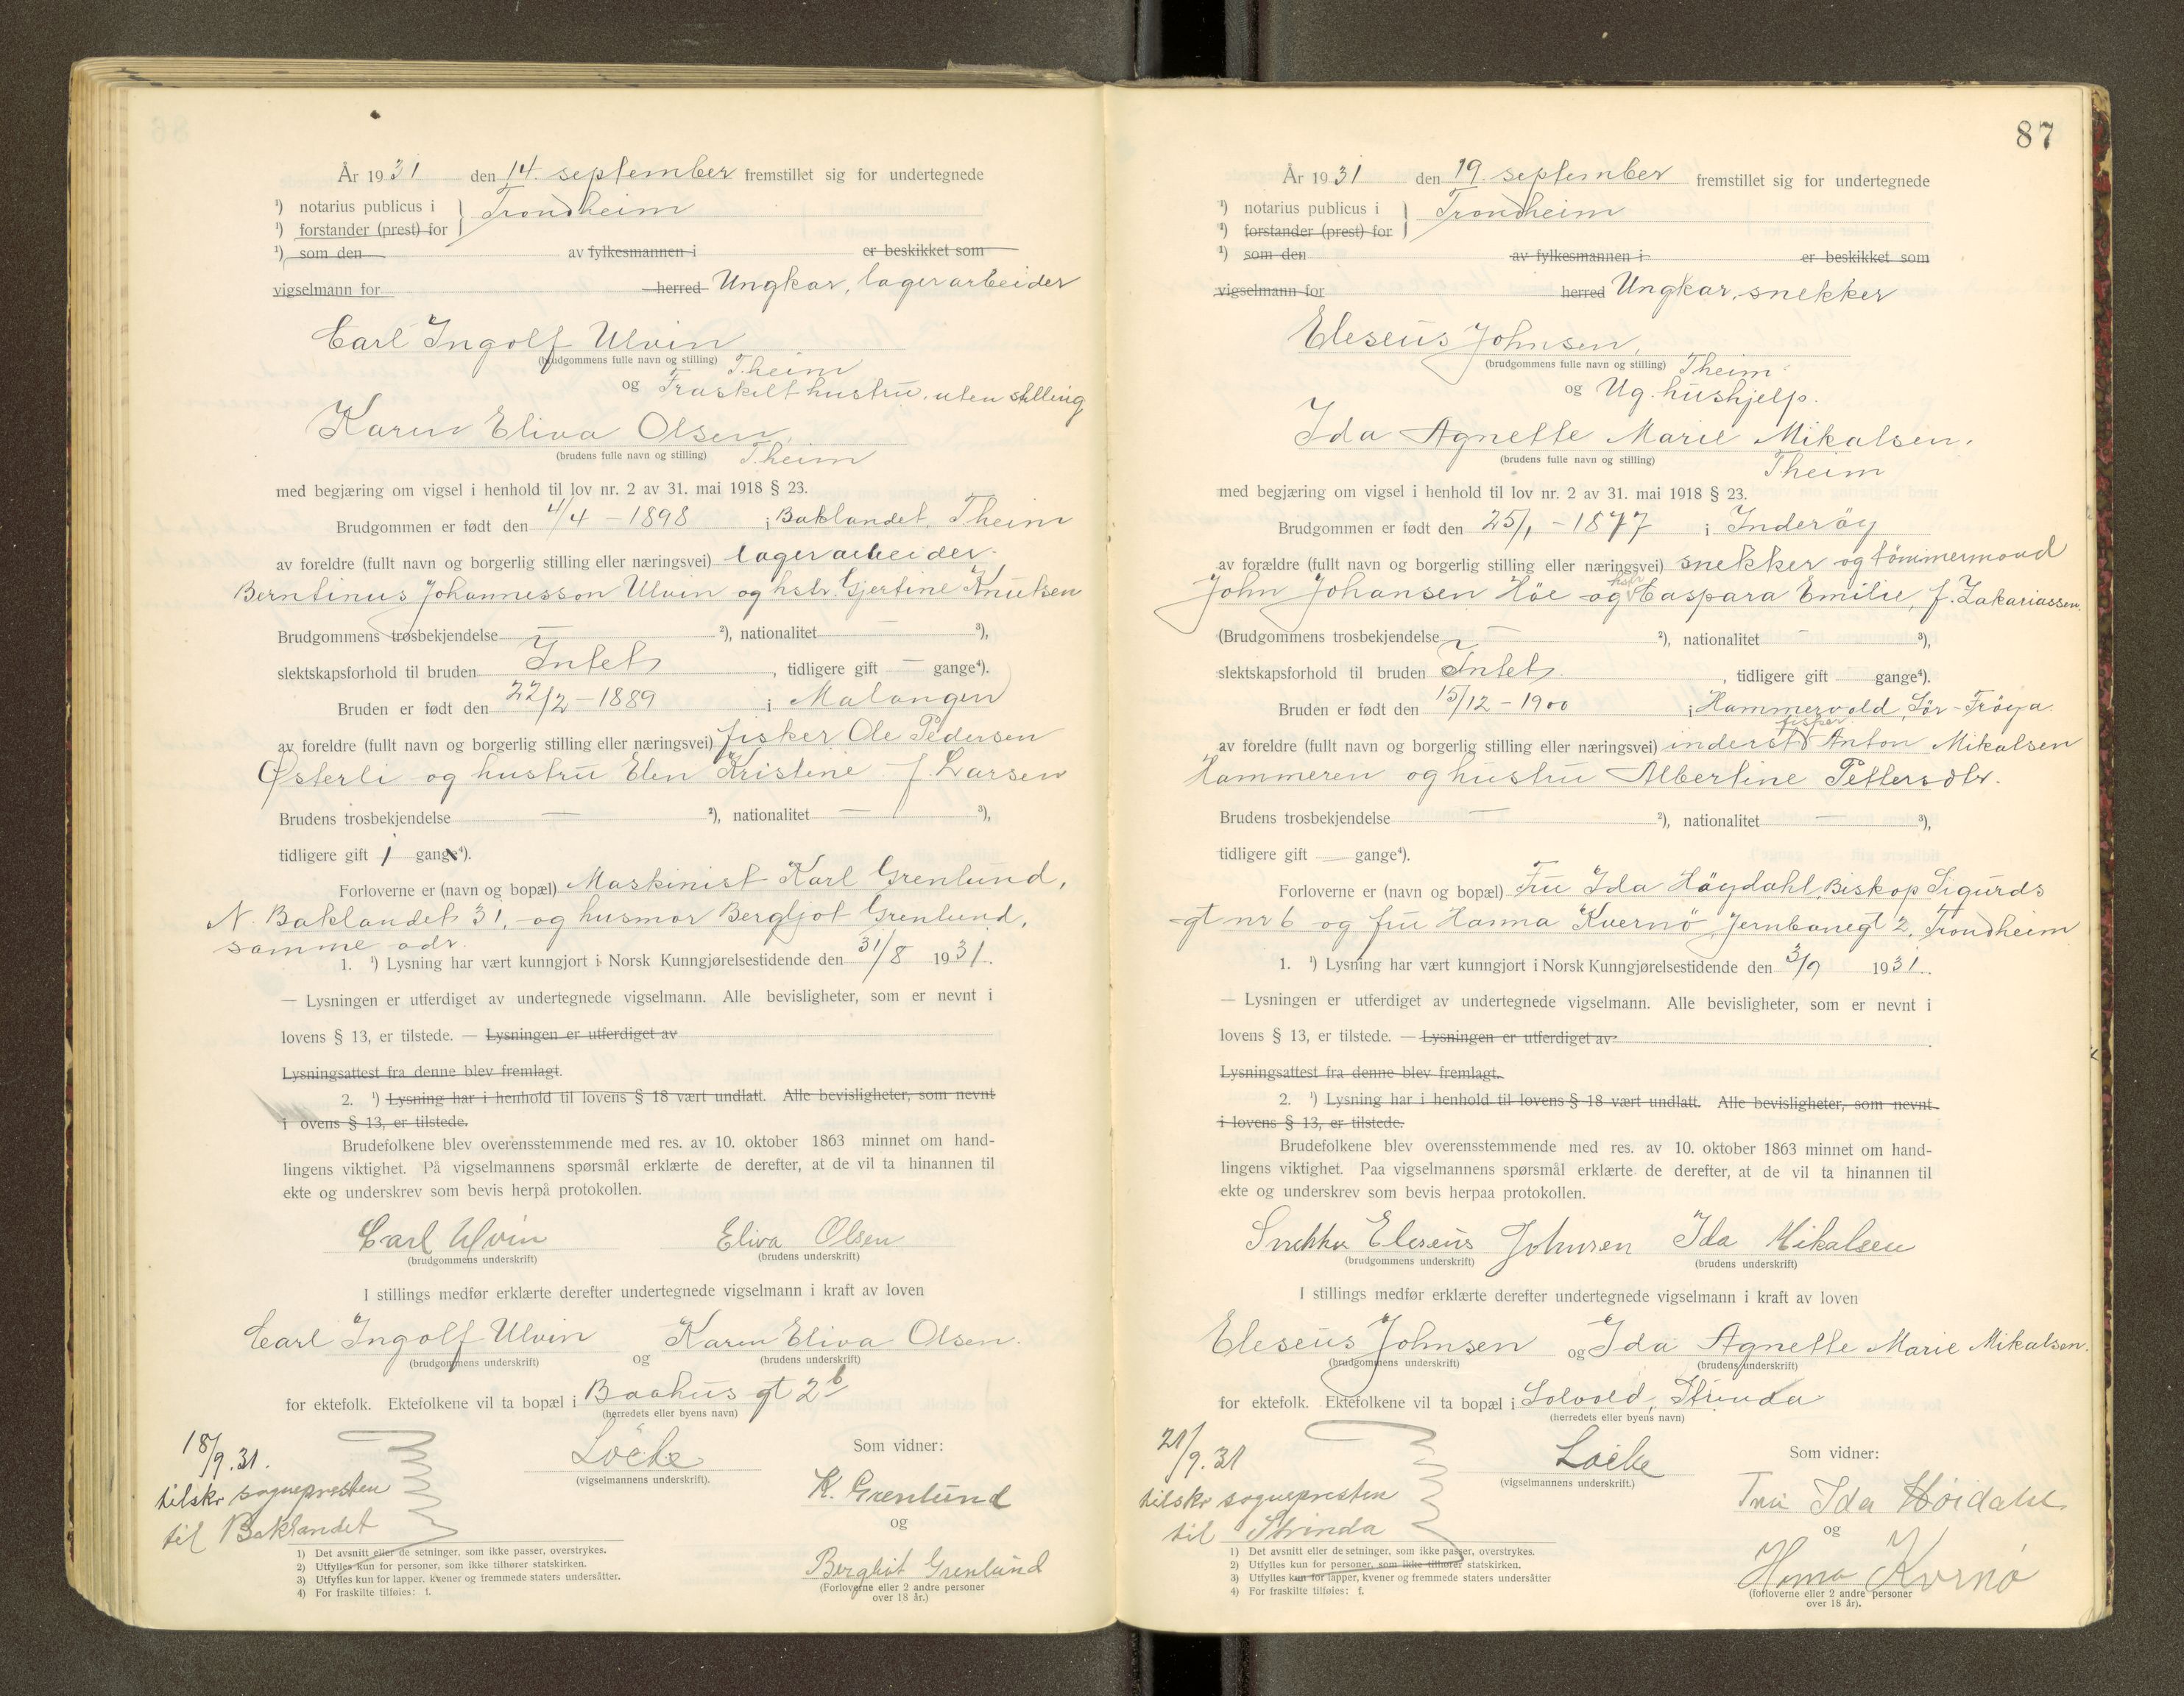 År 1931 den 14. september fremstillet sig for undertegnede
¹) notarius publicus i } Trondheim
¹) forstander (prest) for
¹) som den av fylkesmannen i er beskikket som
vigselmann for herred Ungkar, lagerarbeider
Carl Ingolf Ulvin
(brudgommens fulle navn og stilling) T.heim
og Fraskilt hustru, uten stilling
Karen Eliva Olsen,
(brudens fulle navn og stilling) T.heim
med begjæring om vigsel i henhold til lov nr. 2 av 31. mai 1918 § 23.
Brudgommen er født den 4/4 - 1898 i Baklandet, Theim
av foreldre (fullt navn og borgerlig stilling eller næringsvei) lagerarbeider
Berntinus Johannesson Ulvin og hstr. Gjertine Knutsen
Brudgommens trosbekjendelse — ²), nationalitet — ³),
slektskapsforhold til bruden Intet, tidligere gift — gange⁴).
Bruden er født den 22/2 - 1889 i Malangen
av foreldre (fullt navn og borgerlig stilling eller næringsvei) fisker Ole Pedersen
Østerli og hustru Elen Kristine f. Larsen
Brudens trosbekjendelse — ²), nationalitet — ³),
tidligere gift 1 gange⁴).
Forloverne er (navn og bopæl) Maskinist Karl Grenlund,
N. Baklandet 31, og husmor Bergljot Grenlund,
samme adr.
1. ¹) Lysning har vært kunngjort i Norsk Kunngjørelsestidende den 31/8 1931.
— Lysningen er utferdiget av undertegnede vigselmann. Alle bevisligheter, som er nevnt i
lovens § 13, er tilstede. — Lysningen er utferdiget av
Lysningsattest fra denne blev fremlagt.
2. ¹) Lysning har i henhold til lovens § 18 vært undlatt. Alle bevisligheter, som nevnt
i ovens § 13, er tilstede.
Brudefolkene blev overensstemmende med res. av 10. oktober 1863 minnet om hand-
lingens viktighet. På vigselmannens spørsmål erklærte de derefter, at de vil ta hinannen til
ekte og underskrev som bevis herpå protokollen.
Carl Ulvin Eliva Olsen
(brudgommens underskrift) (brudens underskrift)
I stillings medfør erklærte derefter undertegnede vigselmann i kraft av loven
Carl Ingolf Ulvin og Karen Eliva Olsen.
(brudgommens underskrift) (brudens underskrift)
for ektefolk. Ektefolkene vil ta bopæl i Baahus gt 2b
(herredets eller byens navn)
18/9.31.
tilskr sognepresten
til Baklandet
Löcke
(vigselmannens underskrift).
Som vidner:
K. Grenlund
og
Bergliot Grenlund
(Forloverne eller 2 andre personer
over 18 år.)
1) Det avsnitt eller de setninger, som ikke passer, overstrykes.
2) Utfylles kun for personer, som ikke tilhører statskirken.
3) Utfylles kun for lapper, kvener og fremmede staters undersåtter.
4) For fraskilte tilføies: f.
87
År 1931 den 19. september fremstillet sig for undertegnede
¹) notarius publicus i } Trondheim
¹) forstander (prest) for
¹) som den av fylkesmannen i er beskikket som
vigselmann for herred Ungkar, snekker
Eleseus Johnsen,
(brudgommens fulle navn og stilling) Theim
og Ug. hushjelp.
Ida Agnette Marie Mikalsen,
(brudens fulle navn og stilling) Theim
med begjæring om vigsel i henhold til lov nr. 2 av 31. mai 1918 § 23.
Brudgommen er født den 25/1 - 1877 i Inderöy
av forældre (fullt navn og borgerlig stilling eller næringsvei) snekker og tömmermand
John Johansen Höe og hstr Caspara Emilie, f. Zakariassen.
(Brudgommens trosbekjendelse — ²), nationalitet — ³),
slektskapsforhold til bruden Intet, tidligere gift gange⁴).
Bruden er født den 15/12 - 1900 i Hammervold, Sör-Fröya.
av foreldre (fullt navn og borgerlig stilling eller næringsvei) inderst fisker Anton Mikalsen
Hammeren og hustru Albertine Pettersdtr.
Brudens trosbekjendelse — ²), nationalitet — ³),
tidligere gift — gange⁴).
Forloverne er (navn og bopæl) Fru Ida Höydahl, Biskop Sigurds
gt nr 6 og fru Hanna Kvernö, Jernbanegt 2, Trondheim
1. ¹) Lysning har vært kunngjort i Norsk Kunngjørelsestidende den 3/9 1931.
— Lysningen er utferdiget av undertegnede vigselmann. Alle bevisligheter, som er nevnt i
lovens § 13, er tilstede. — Lysningen er utferdiget av
Lysningsattest fra denne blev fremlagt.
2. ¹) Lysning har i henhold til lovens § 18 vært undlatt. Alle bevisligheter, som nevnt
i lovens § 13, er tilstede.
Brudefolkene blev overensstemmende med res. av 10. oktober 1863 minnet om hand-
lingens viktighet. Paa vigselmannens spørsmål erklærte de derefter, at de vil ta hinannen til
ekte og underskrev som bevis herpaa protokollen.
Snekker Eleseus Johnsen Ida Mikalsen
(brudgommens underskrift) (brudens underskrift)
I stillings medfør erklærte derefter undertegnede vigselmann i kraft av loven
Eleseus Johnsen og Ida Agnette Marie Mikalsen.
(brudgommens underskrift) (brudens underskrift)
for ektefolk. Ektefolkene vil ta bopæl i Solvold, Strinda
(herredets eller byens navn)
21/9.31
tilskr sognepresten
til Strinda
Löcke
(vigselmannens underskrift.)
Som vidner:
Fru Ida Höidahl
og
Hanna Kvernö
(forloverne eller 2 andre personer
over 18 år).
1) Det avsnitt eller de setninger, som ikke passer, overstrykes.
2) Utfylles kun for personer, som ikke tilhører statskirken.
3) Utfylles kun for lapper, kvener og fremmede staters undersåtter
4) For fraskilte tilføies: f.